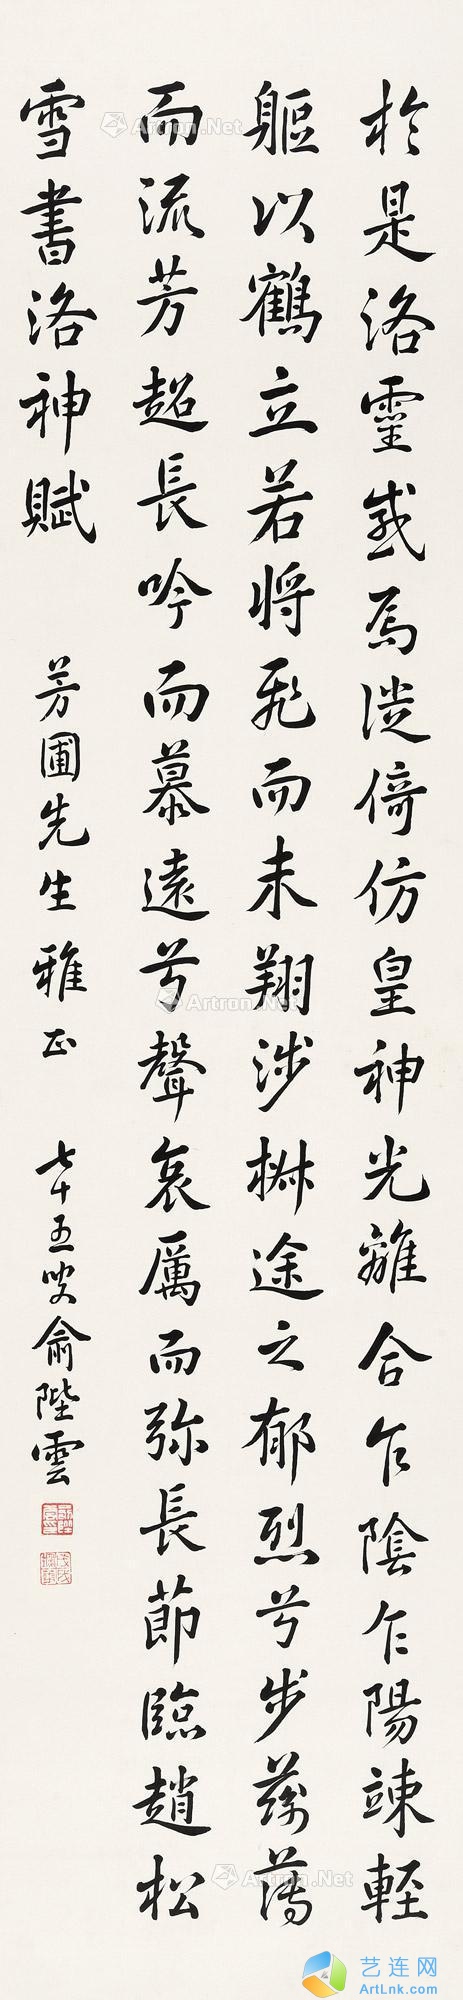 於是洛靈感焉徙倚仿皇神光離合乍陰乍陽竦輕
軀以鶴立若將飛而未翔涉椒途之郁烈兮步蘅薄
而流芳超長吟而慕遠兮聲哀厲而弥長節臨趙松
雪書洛神賦
芳圃先生雅正
七十五叟俞陛雲
Artron.Net
Artron.Net
Artron.Net
Artron.Net
Artron.Net
艺连网
ArtLnk.com